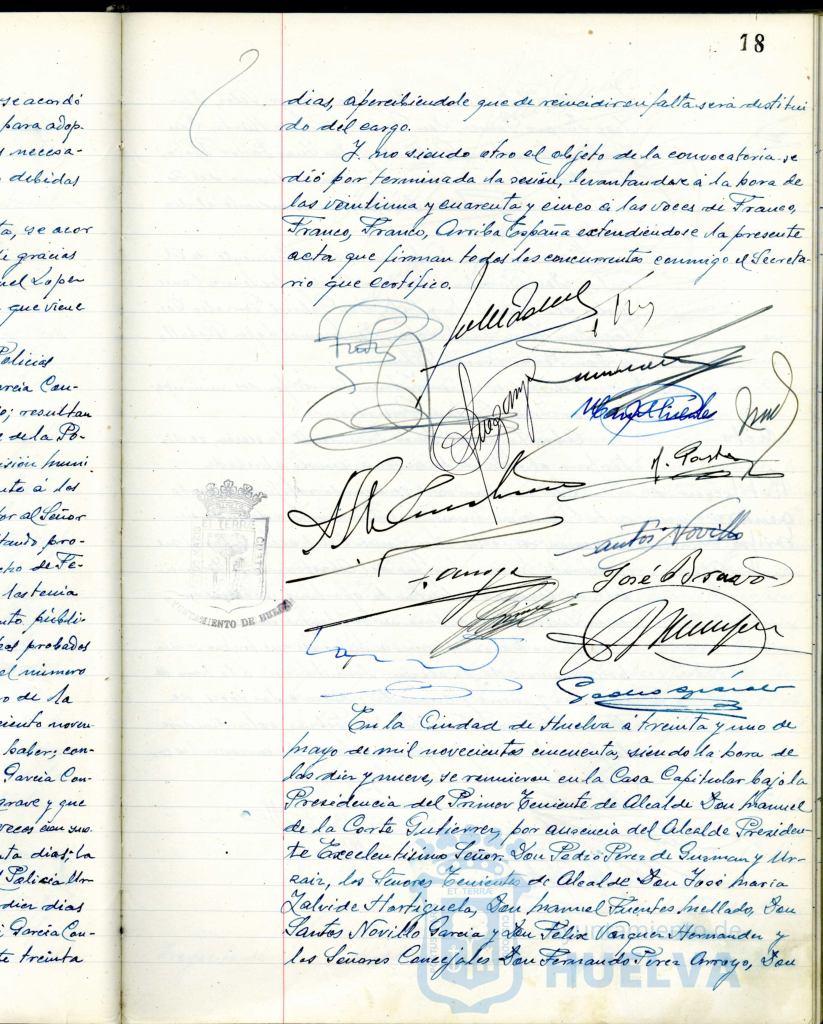 18
se acordó
para adop-
s necesa-
debidas
ta, se acor
gracias
uel Lopez
que viene
Policias
arcia Con-
o; resultan
e de la Po-
isión muni
nto á los
or al Señor
tando pro-
cho de Fe-
las tenia
nto públi-
has probados
el número
ro de la
ciento noven
haber; con-
Garcia Con-
grave y que
veces
nta dias; la
Policia Ur-
diez dias
Garcia Con-
te treinta
dias, apercibiendole que de reincidir en falta será destitui
do del cargo.
Y no siendo otro el objeto de la convocatoria se
dió por terminada la sesión, levantandose á la hora de
las veintiuna y cuarenta y cinco á las voces de Franco,
Franco, Franco, Arriba España extendiendose la presente
acta que firman todos los concurrentes conmigo el Secreta-
rio que certifico.
Manuel Fuentes
Santos Novillo
José Bravo
AYUNTAMIENTO DE HUELVA
En la Ciudad de Huelva á treinta y uno de
mayo de mil novecientos cincuenta, siendo la hora de
las diez y nueve, se reunieron en la Casa Capitular bajo la
Presidencia del Primer Teniente de Alcalde Don Manuel
de la Corte Gutierrez, por ausencia del Alcalde Presiden-
te Excelentisimo Señor Don Pedro Perez de Guzman y Ur-
zaiz, los Señores Tenientes de Alcalde Don José Maria
Zalvide Hortiguela, Don Manuel Fuentes Mellado, Don
Santos Novillo Garcia y Don Felix Vazquez Hernandez y
los Señores Concejales Don Fernando Perez Arroyo, Don
Ayuntamiento de
HUELVA